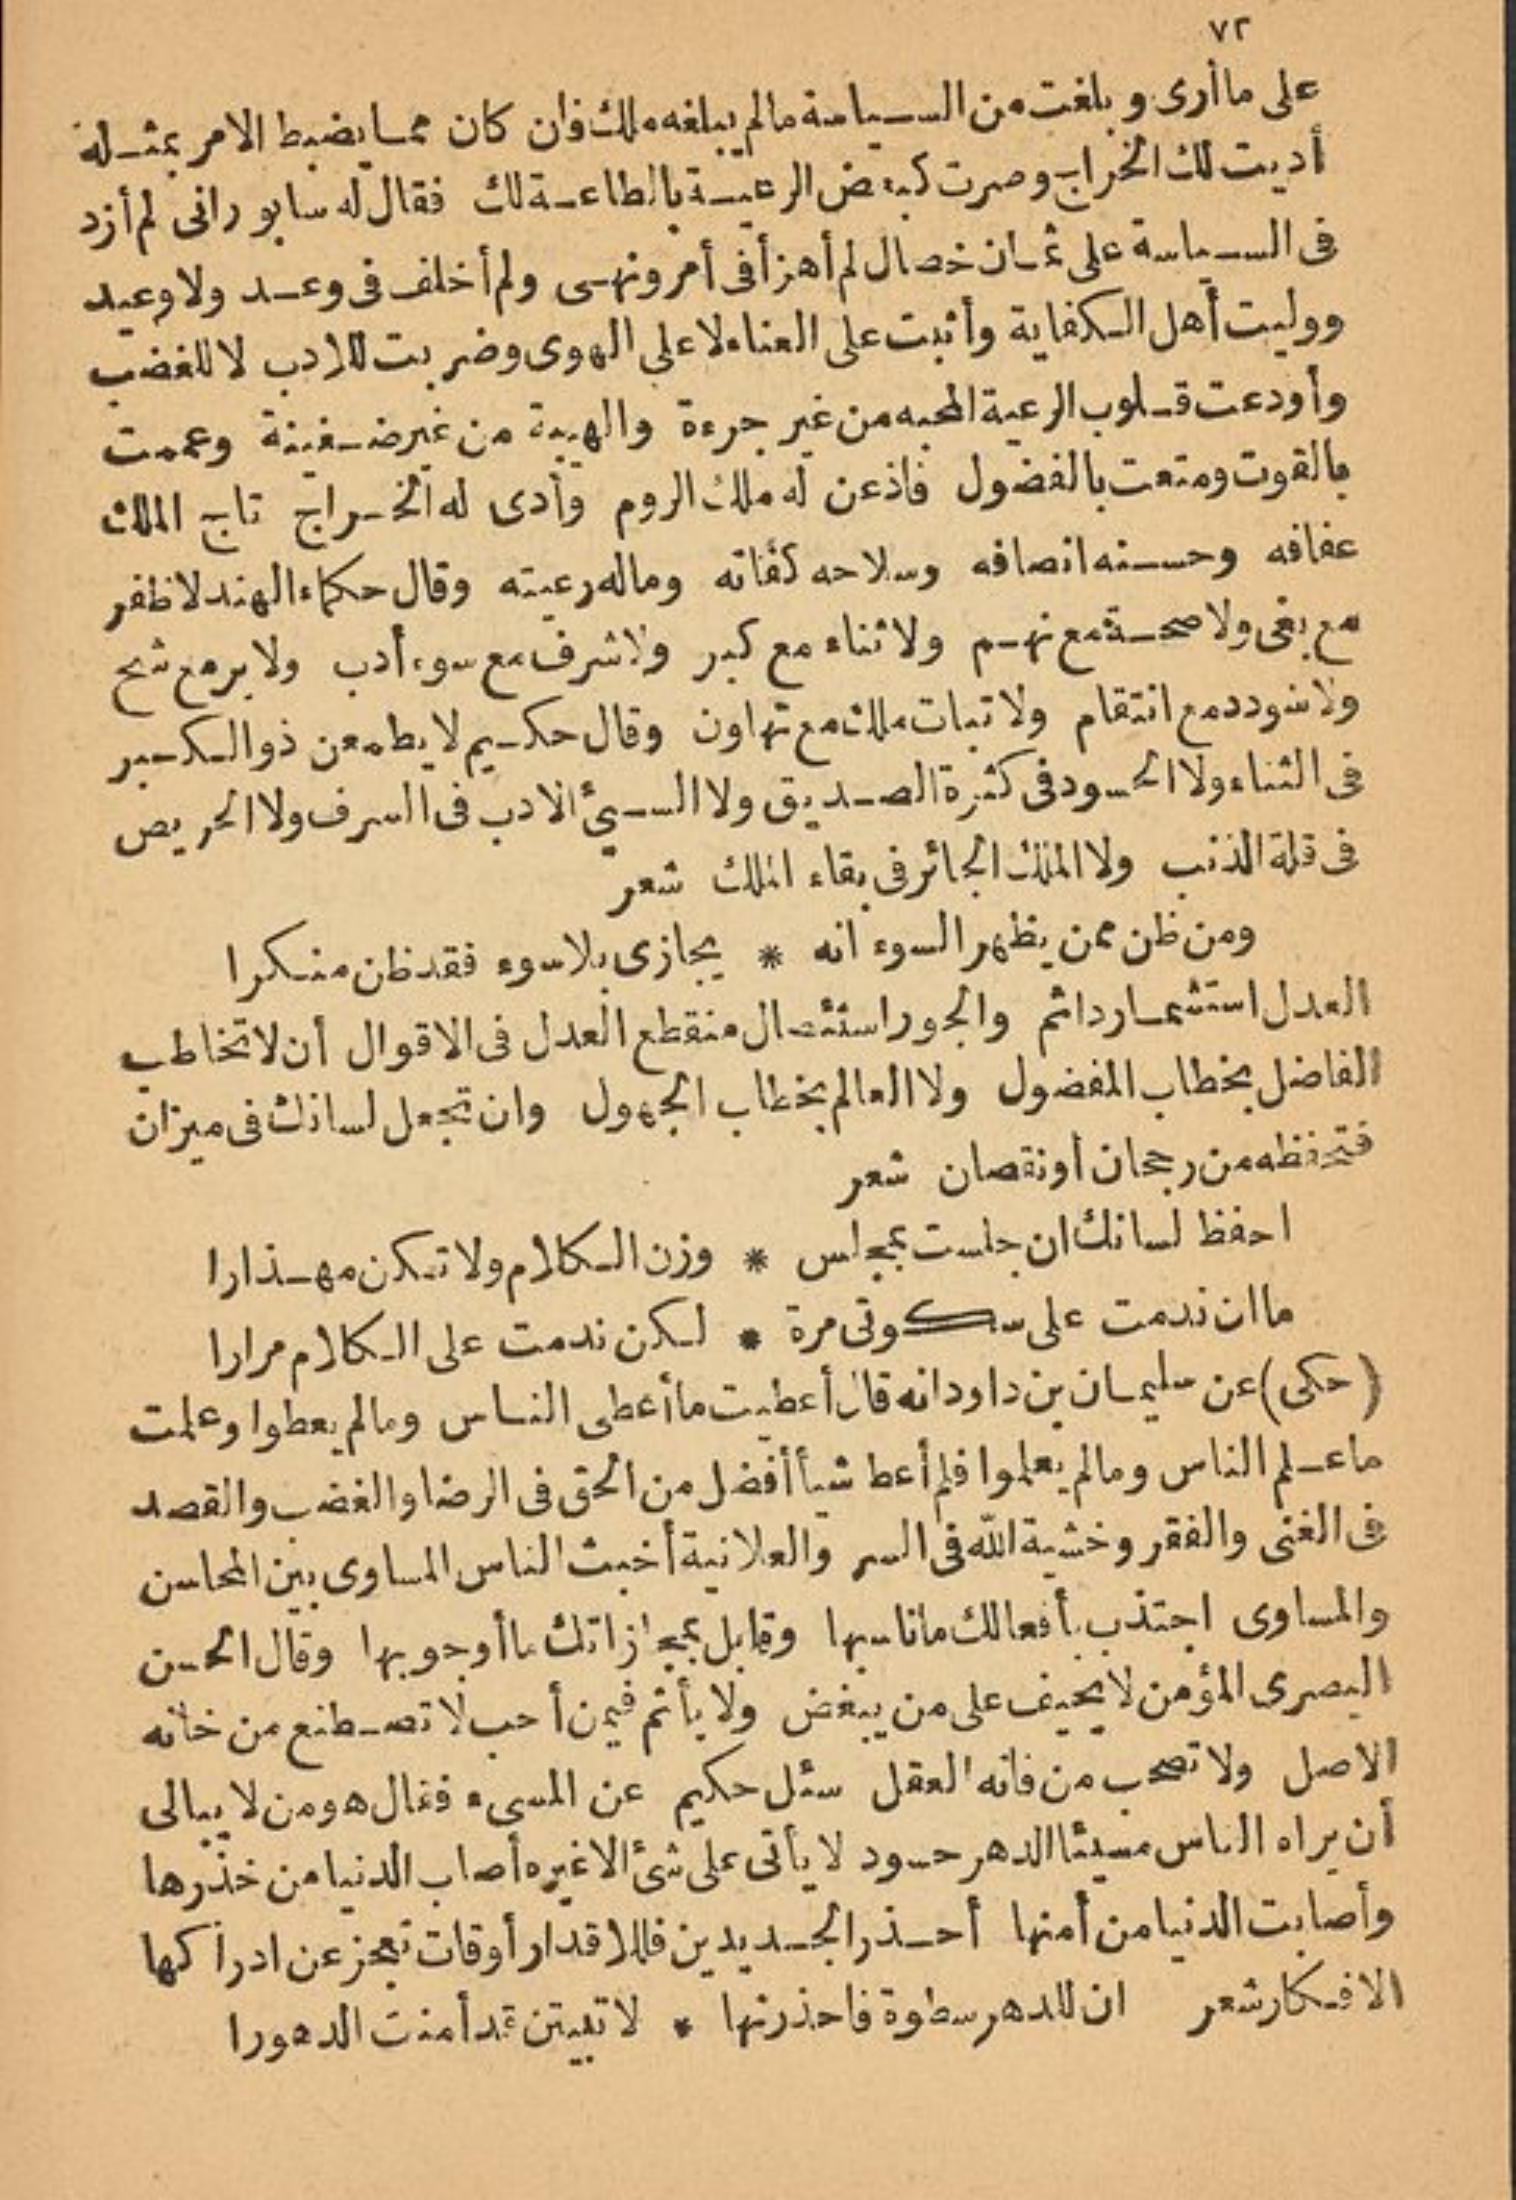 ٧٢
على ما أرى و بلغت من السياسة ما لم يبلغه ملك فان كان مما يضبط الامر بمثله
أديت لك الخراج وصرت كبعض الرعية بالطاعة لك فقال له سابور انى لم أزد
فى السياسة على ثمان خصال لم أهزأ فى أمر ونهى ولم أخلف فى وعد ولا وعيد
ووليت أهل الكفاية وأثبت على العناء لا على الهوى وضربت للادب لا للغضب
وأودعت قلوب الرعية المحبه من غير جرءة والهيبة من غير ضغينة وعممت
بالقوت ومتعت بالفضول فاذعن له ملك الروم وأدى له الخراج تاج الملك
عفافه وحسنه انصافه وسلاحه كفاته وماله رعيته وقال حكماء الهند لا ظفر
مع بغى ولا صحة مع نهم ولا ثناء مع كبر ولا شرف مع سوء أدب ولا بر مع شح
ولا سودد مع انتقام ولا ثبات ملك مع تهاون وقال حكيم لا يطمعن ذو الكبر
فى الثناء ولا الحسود فى كثرة الصديق ولا السيئ الادب فى السرف ولا الحريص
فى قلة الذنب ولا الملك الجائر فى بقاء الملك شعر
ومن ظن ممن يظهر السوء انه * يجازى بلا سوء فقد ظن منكرا
العدل استثمار دائم والجور استئصال منقطع العدل فى الاقوال أن لا تخاطب
الفاضل بخطاب المفضول ولا العالم بخطاب الجهول وان تجعل لسانك فى ميزان
فتحفظه من رجحان أو نقصان شعر
احفظ لسانك ان جلست بمجلس * وزن الكلام ولا تكن مهذارا
ما ان ندمت على سكوتى مرة * لكن ندمت على الكلام مرارا
(حكى) عن سليمان بن داود انه قال أعطيت ما أعطى الناس وما لم يعطوا وعلمت
ما علم الناس وما لم يعلموا فلم أعط شيأ أفضل من الحق فى الرضا والغضب والقصد
فى الغنى والفقر وخشية الله فى السر والعلانية أخبث الناس المساوى بين المحاسن
والمساوى اجتذب بأفعالك ما ناسبها وقابل بمجازاتك ما أوجوبها وقال الحسن
البصرى المؤمن لا يحيف على من يبغض ولا يأثم فيمن أحب لا تصطنع من خانه
الاصل ولا تصحب من فاته العقل سئل حكيم عن المسىء فقال هو من لا يبالى
أن يراه الناس مسيئا الدهر حسود لا يأتى على شئ الا غيره أصاب الدنيا من حذرها
وأصابت الدنيا من أمنها أحذر الجديدين فللاقدار أوقات تعجز عن ادراكها
الافكار شعر ان للدهر سطوة فاحذرنها * لا تبيتن قد أمنت الدهورا